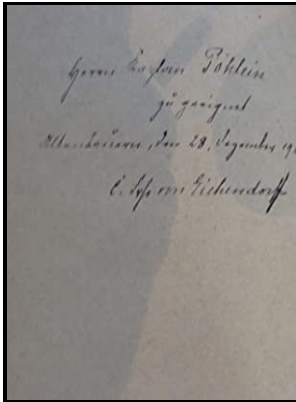 Herrn Kaplan Pöhlein
zu geeignet
Altenbeuern, den 28. Dezember 19
C. Frhr von Eichendorff